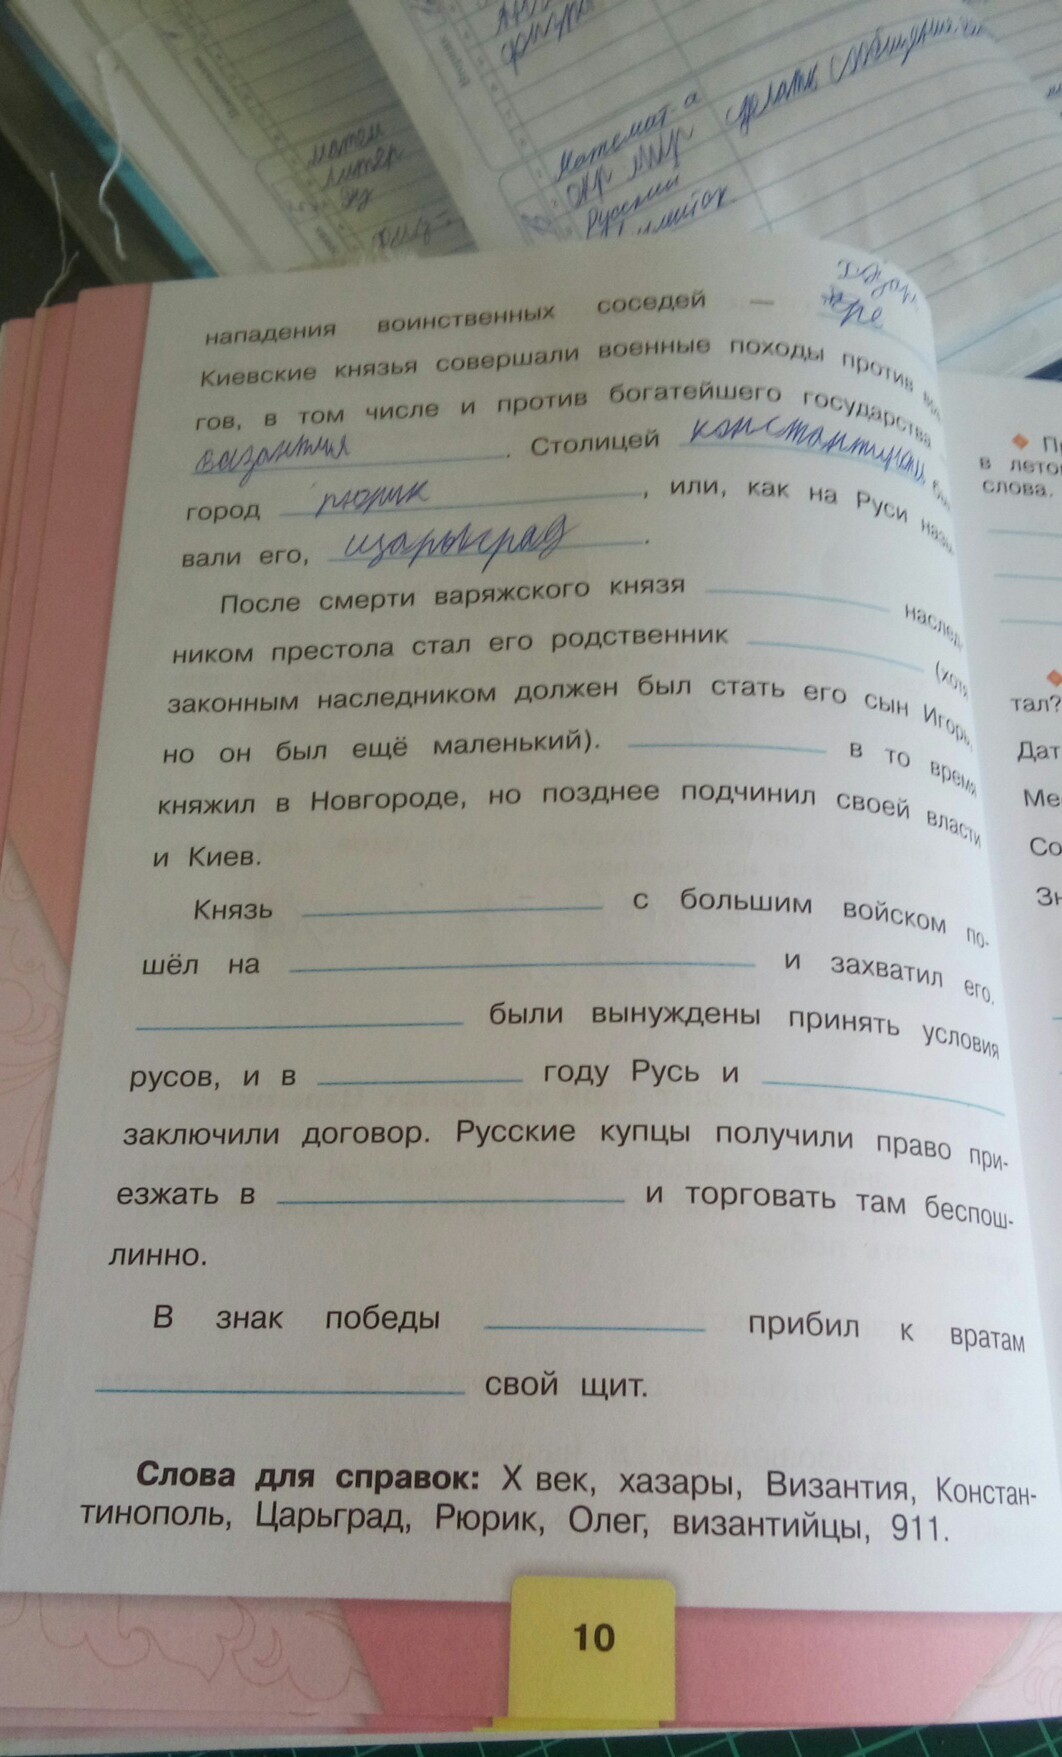 матем
литер
Математ а
окр мир
Русский
делать
нападения воинственных соседей —
Киевские князья совершали военные походы против
гов, в том числе и против богатейшего государства
византия . Столицей
город рюрик , или, как на Руси назы-
вали его, щарьград .
После смерти варяжского князя наслед-
ником престола стал его родственник (хотя
законным наследником должен был стать его сын Игорь,
но он был ещё маленький). в то время
княжил в Новгороде, но позднее подчинил своей власти
и Киев.
Князь с большим войском по-
шёл на и захватил его.
были вынуждены принять условия
русов, и в году Русь и
заключили договор. Русские купцы получили право при-
езжать в и торговать там беспош-
линно.
В знак победы прибил к вратам
свой щит.
Слова для справок: X век, хазары, Византия, Констан-
тинополь, Царьград, Рюрик, Олег, византийцы, 911.
10
в лето
слова.
тал?
Дат
Ме
Со
Зн